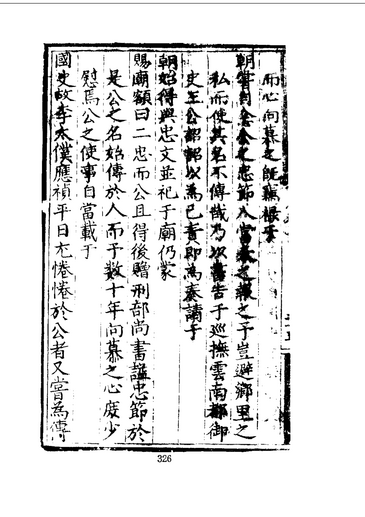 而心向慕之既
朝嘗自念公之忠節人當之予豈避鄉里之
私而使其名不傳哉乃以書告于巡撫雲南都御
史王公詔詔以為己責即為奏請于
朝始得與忠文並祀于廟仍蒙
賜廟額曰二忠而公且得後贈刑部尚書諡忠節於
是公之名始傳於人而予數十年向慕之心庶少
慰焉公之使事自當載于
國史故李太僕應禎平日尤惓惓於公者又嘗為傳
326